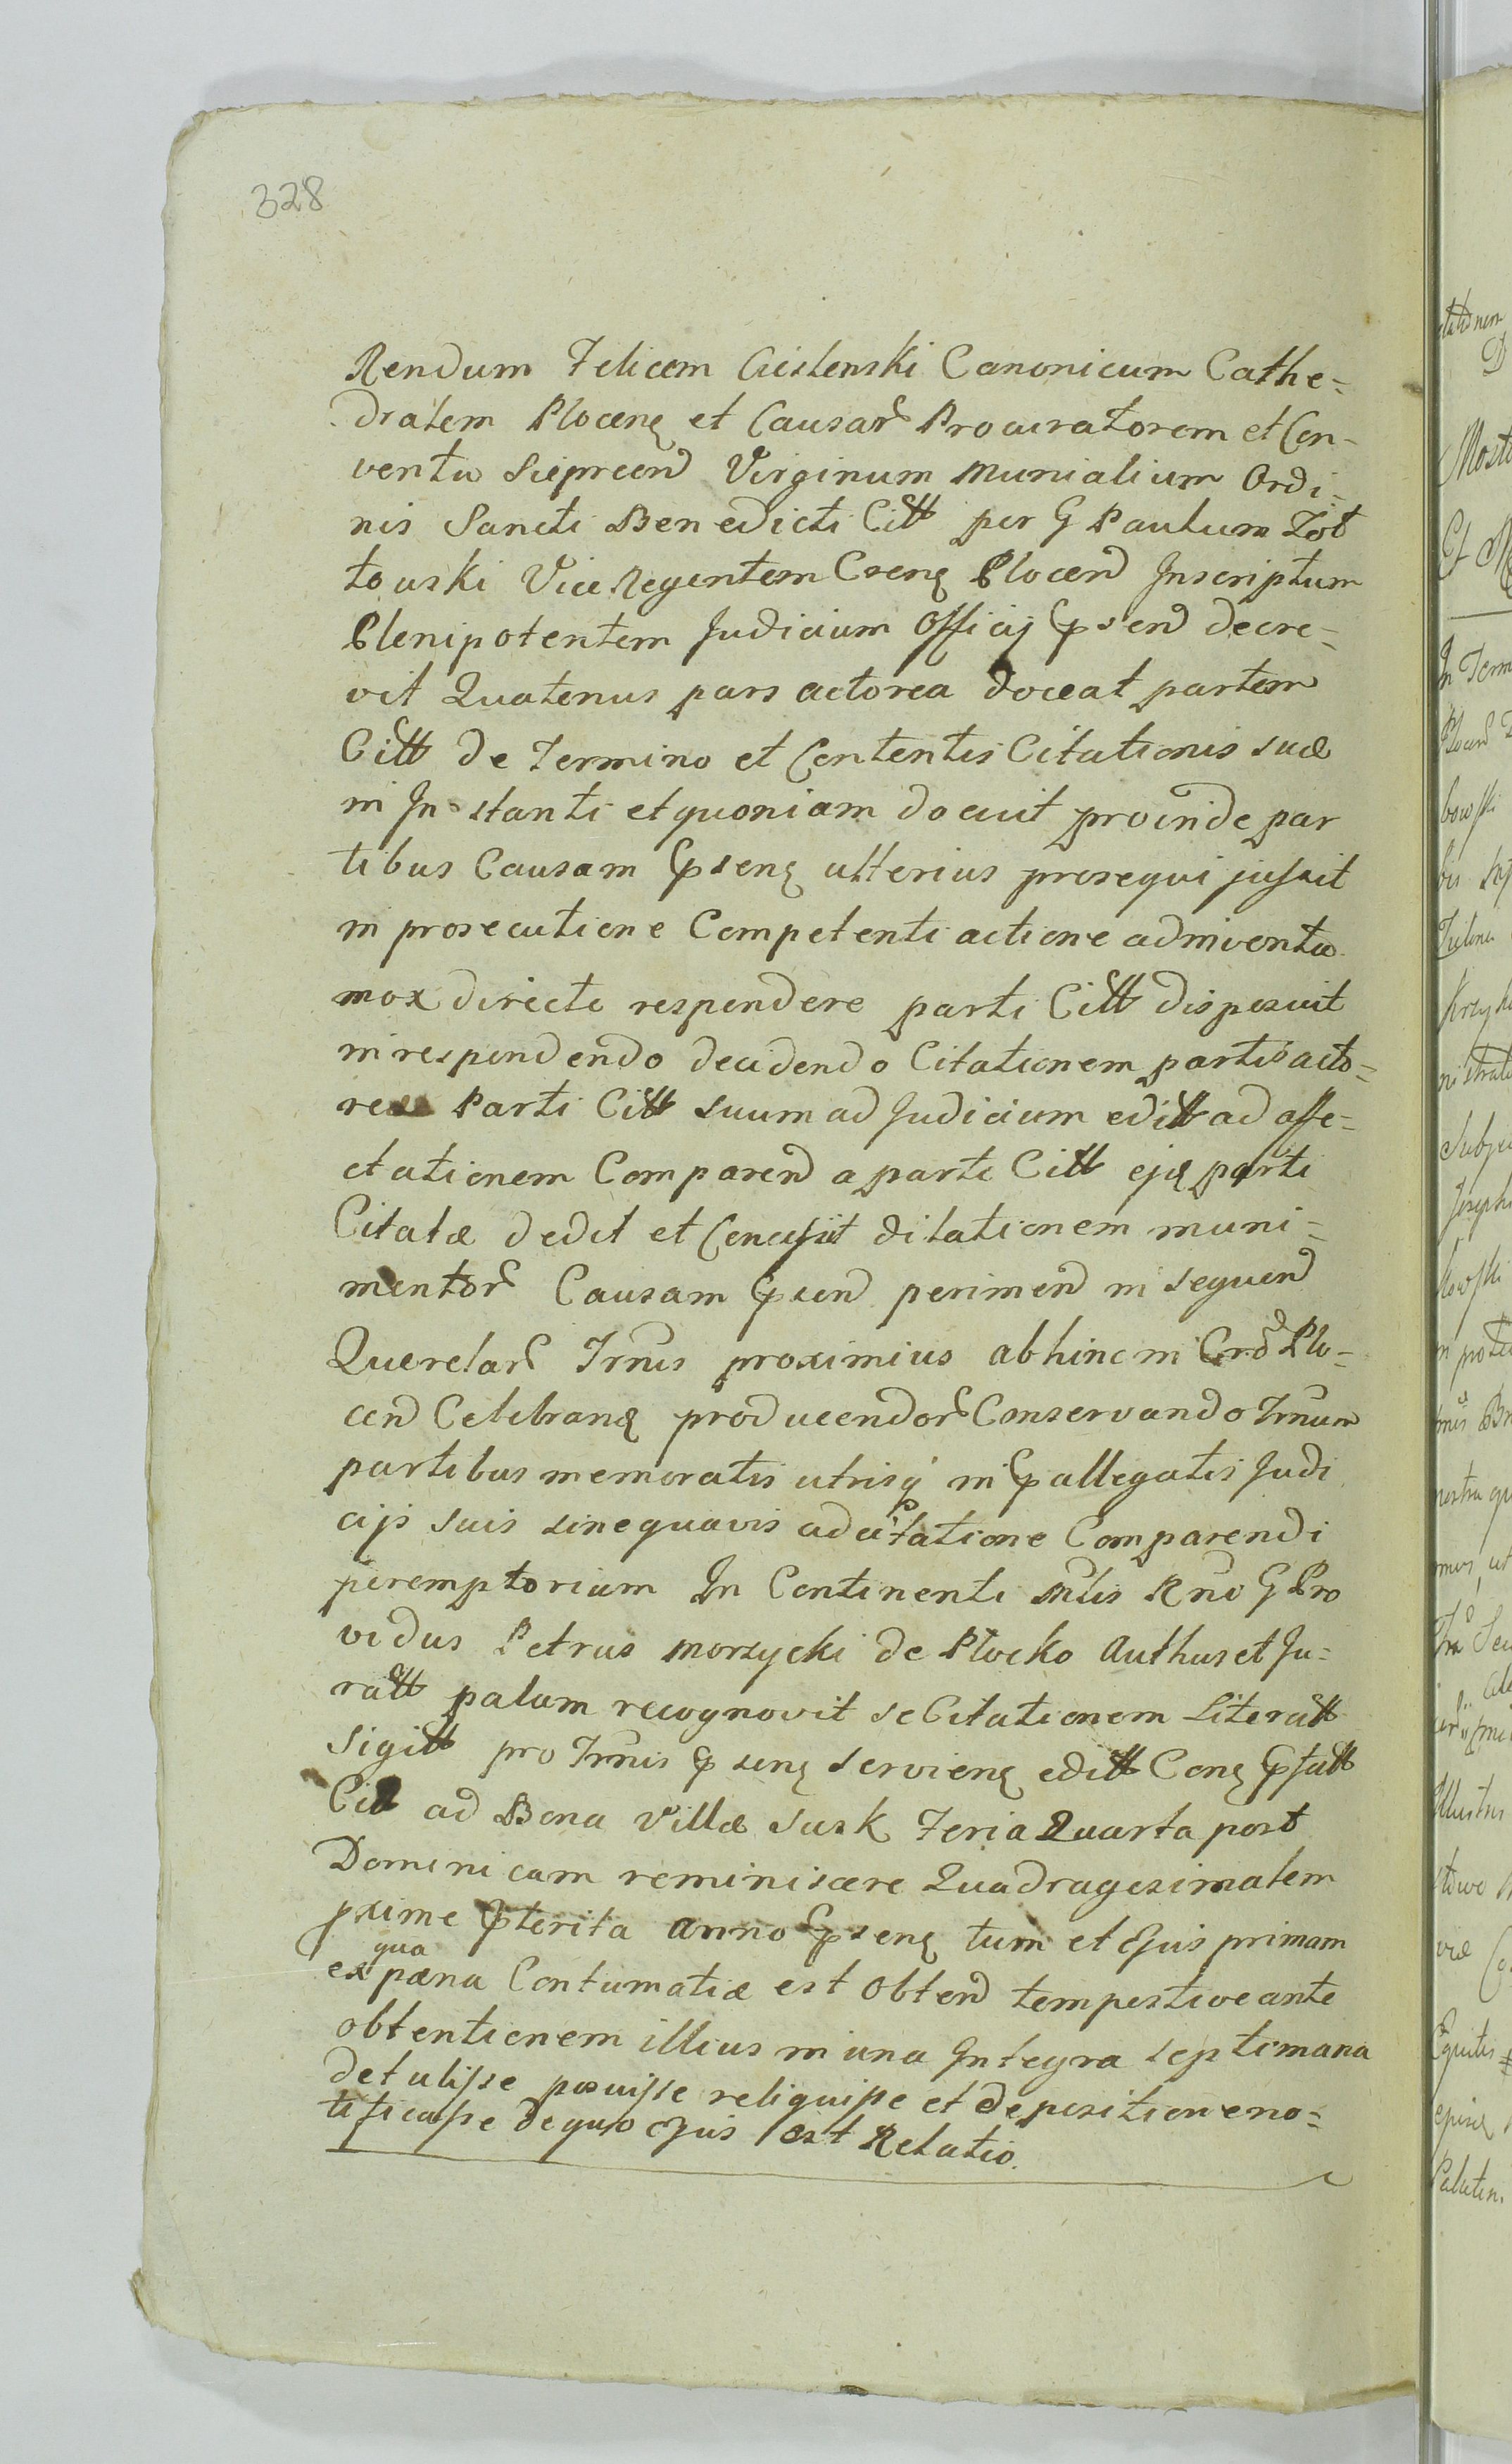 328
Rendum Felicem Cieslenski Canonicum Cathe=
dralem Plocen et Causar Procuratorem et Con-
ventu Sieprcen Virginum Munialium Ordi=
nis Sancti Benedicti Citt per G Paulum Zoł
touski Vice Regentem Csren Plocen Inscriptum
Plenipotentem Judicium Officij Ppsen decre=
vit Quatenus pars actorea doceat partem
Citt de Termino et Contentis Citationis suæ
in Instanti et quoniam docuit proinde par
tibus Causam Ppsen ulterius prosequi jussit
in prosecutione Competenti actione adinventa
mox directe respondere parti Citt disposuit
in respondendo decidendo Citationem partis acto=
reæ Parti Citt suum ad Judicium editt ad affe=
ctationem Comparen a parte Citt ejq parti
Citatæ dedit et Concessit dilationem muni=
mentor Causam Ppsen perimen in sequen
Querelar Trnis proximius abhinc in Crd Plo=
cen Celebran producendor Conservando Trnum
partibus memoratis utrisq in Ppallegatis Judi
cijs suis sine quavis adcitatione Comparendi
peremptorium In Continenti Mlis Rno G Pro
vidus Petrus Morzycki de Plocko Authus et Ju=
ratt palam recognovit se Citationem Literatt
Sigitt pro Trnis Ppsen servien editt Con Ppfatt
Cit ad Bona Villæ Susk Feria Quarta post
Dominicam reminiscere Quadragesimalem
pxime Ppterita anno Ppsen tum et Ejus primam
ex qua pæna Contumatiæ est Obten tempestive ante
obtentionem illius in una Integra septimana
detulisse posuisse reliquisse et depositione no=
tificasse de quo Ejus est Relatio.